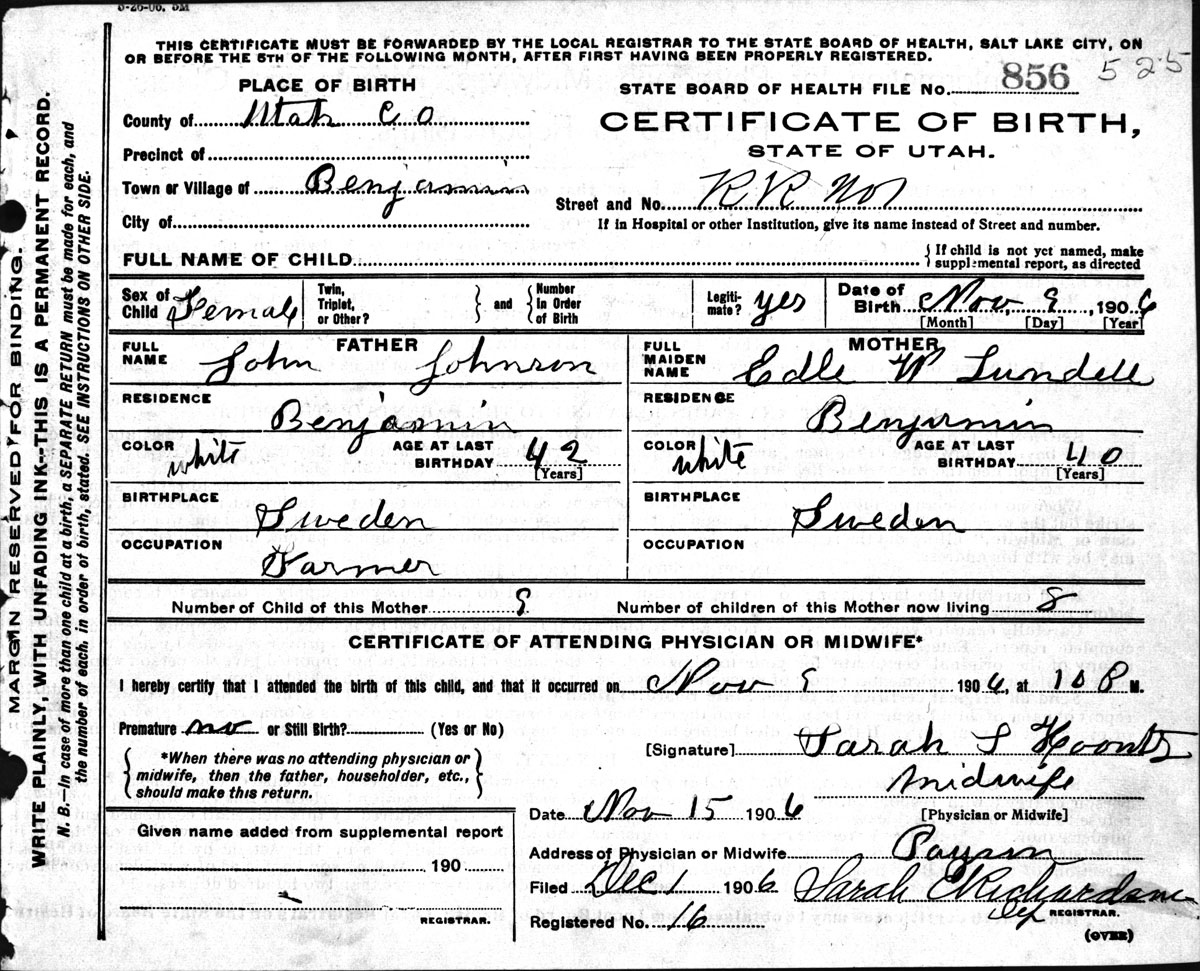 3-26-06. 5M
THIS CERTIFICATE MUST BE FORWARDED BY THE LOCAL REGISTRAR TO THE STATE BOARD OF HEALTH, SALT LAKE CITY, ON
OR BEFORE THE 5TH OF THE FOLLOWING MONTH, AFTER FIRST HAVING BEEN PROPERLY REGISTERED.
525
PLACE OF BIRTH
STATE BOARD OF HEALTH FILE No. 856
County of Utah Co
CERTIFICATE OF BIRTH,
STATE OF UTAH.
Precinct of
Town or Village of Benjamin
Street and No. RR No 1
City of
If in Hospital or other Institution, give its name instead of Street and number.
FULL NAME OF CHILD
{If child is not yet named, make
supplemental report, as directed
Sex of Child Female
Twin, Triplet, or Other? } and { Number in Order of Birth
Legiti-mate? yes
Date of Birth Nov 9, 1906
[Month] [Day] [Year]
FATHER
FULL NAME John Johnson
RESIDENCE Benjamin
COLOR white AGE AT LAST BIRTHDAY 42
[Years]
BIRTHPLACE Sweden
OCCUPATION Farmer
MOTHER
FULL MAIDEN NAME Edle W Lundell
RESIDENCE Benjamin
COLOR white AGE AT LAST BIRTHDAY 40
[Years]
BIRTHPLACE Sweden
OCCUPATION
Number of Child of this Mother 9 Number of children of this Mother now living 8
CERTIFICATE OF ATTENDING PHYSICIAN OR MIDWIFE*
I hereby certify that I attended the birth of this child, and that it occurred on Nov 9 1906, at 10 P M.
Premature no or Still Birth? (Yes or No)
*When there was no attending physician or
midwife, then the father, householder, etc.,
should make this return.
[Signature] Sarah S Koontz
midwife
[Physician or Midwife]
Date Nov 15 1906
Given name added from supplemental report
190
REGISTRAR.
Address of Physician or Midwife Payson
Filed Dec 1 1906 Sarah E Richardson
Dep REGISTRAR.
Registered No. 16
(OVER)
MARGIN RESERVED FOR BINDING.
WRITE PLAINLY, WITH UNFADING INK--THIS IS A PERMANENT RECORD.
N. B.—In case of more than one child at a birth, a SEPARATE RETURN must be made for each, and
the number of each, in order of birth, stated. SEE INSTRUCTIONS ON OTHER SIDE.